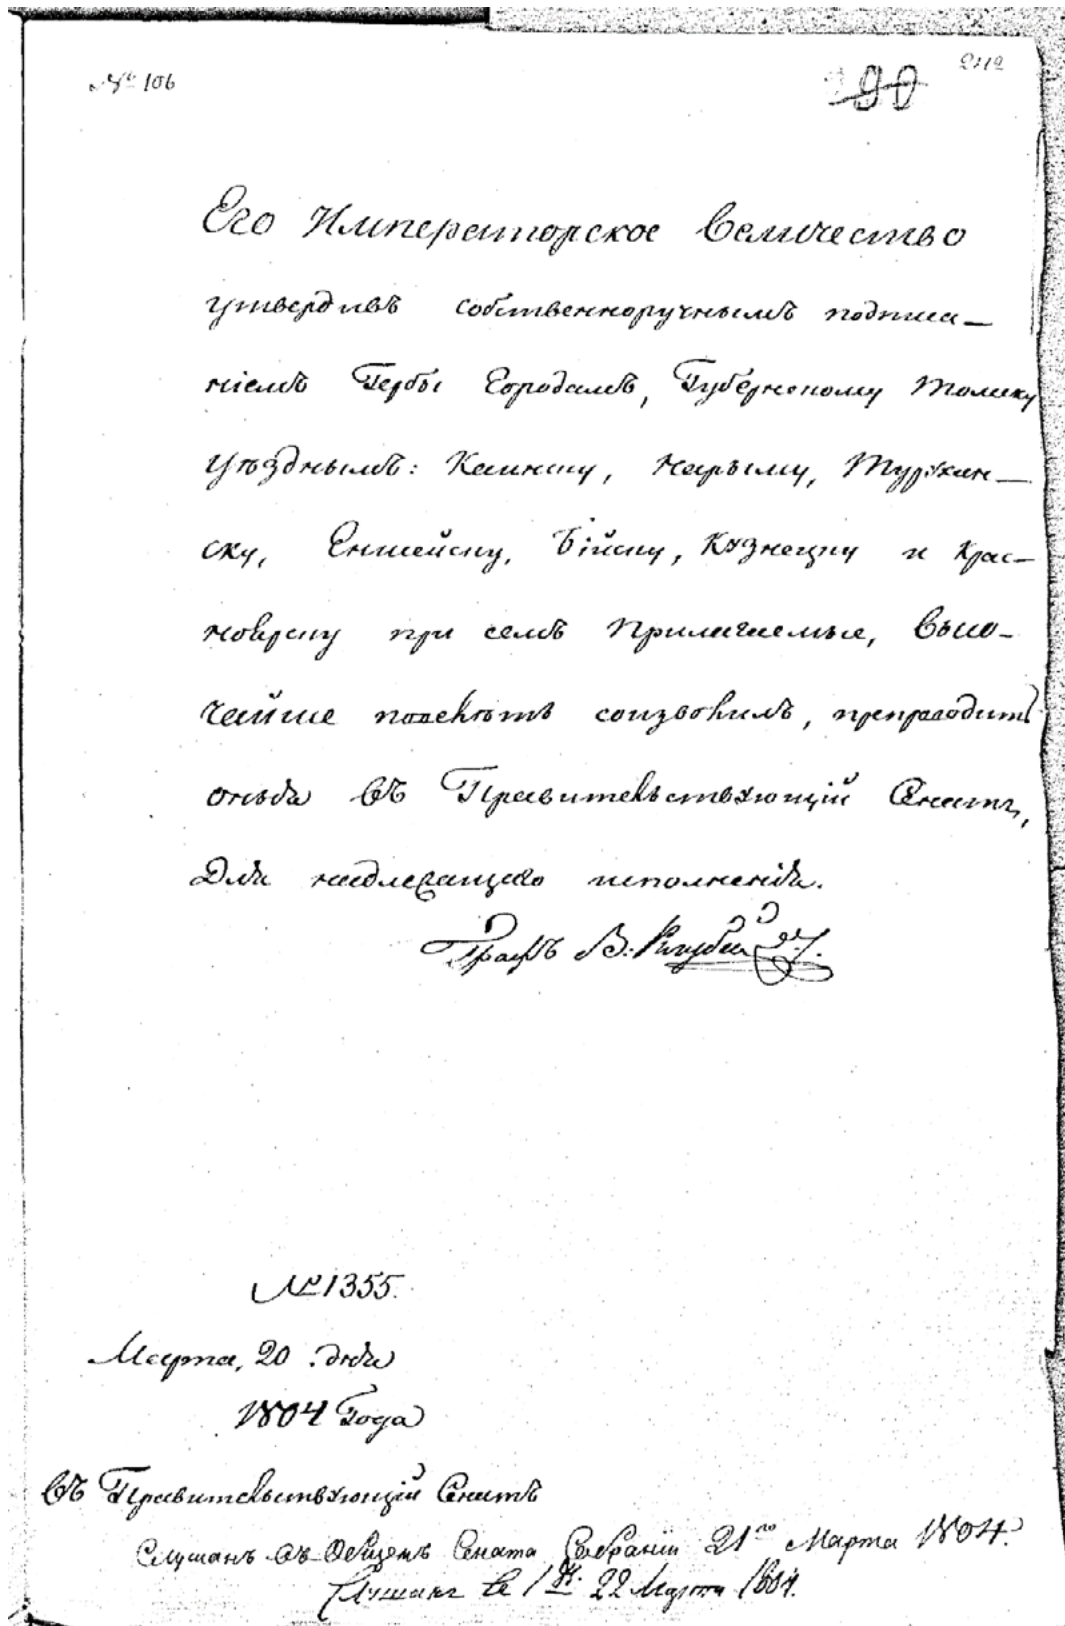 № 106
Его Императорское Величество
утвердивъ собственноручнымъ подписа-
ніемъ Гербы Городамъ, Губернскому Томску
Уѣзднымъ: Каинску, Нарыму, Турухан-
ску, Енисейску, Бійску, Кузнецку и Крас-
ноярску при семъ прилагаемые, Высо-
чайше повелѣть соизволилъ, препроводить
оныя въ Правительствующій Сенатъ,
для надлежащаго исполненія.
Графъ В. Кочубей
№ 1355.
Марта, 20 дня
1804 Года
Въ Правительствующій Сенатъ
Слушанъ въ Общемъ Сената Собраніи 21го Марта 1804.
Слушанъ въ 1 Д. 22 Марта 1804.